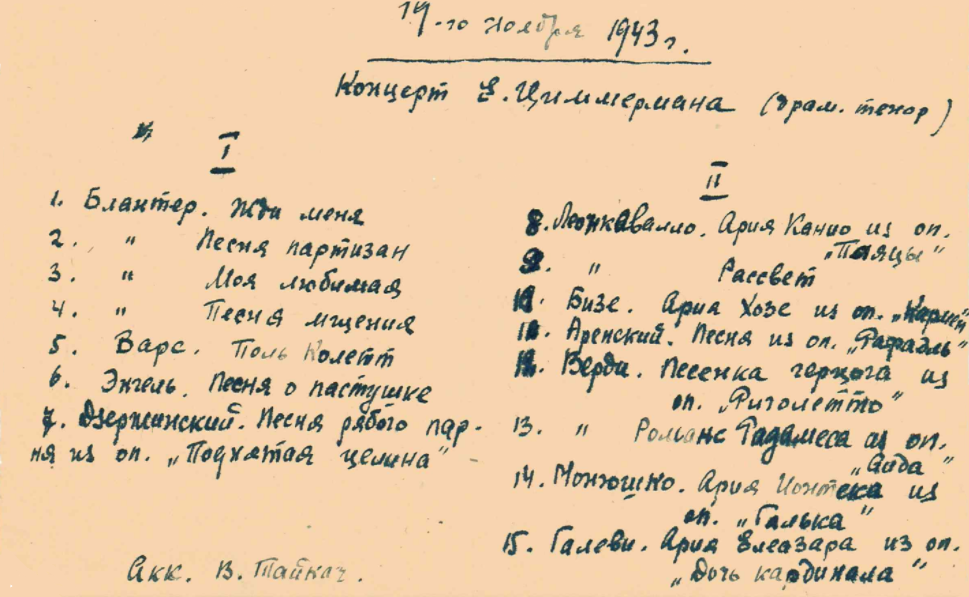 14-го ноября 1943 г.
Концерт Е. Циммермана (драм. тенор)
I
1. Блантер. Жди меня
2. " Песня партизан
3. " Моя любимая
4. " Песня мщения
5. Варс. Поль Колетт
6. Энгель. Песня о пастушке
7. Дзержинский. Песня рябого пар-
ня из оп. „Поднятая целина"
Акк. В.
II
8. Леонкавалло. Ария Канио из оп.
„Паяцы"
9. " Рассвет
10. Бизе. Ария Хозе из оп. „Кармен"
11. Аренский. Песня из оп. „Рафаэль"
12. Верди. Песенка герцога из
оп. „Риголетто"
13. " Романс Радамеса из оп.
„Аида"
14. Монюшко. Ария Ионтека из
оп. „Галька"
15. Галеви. Ария Елеазара из оп.
„Дочь кардинала"